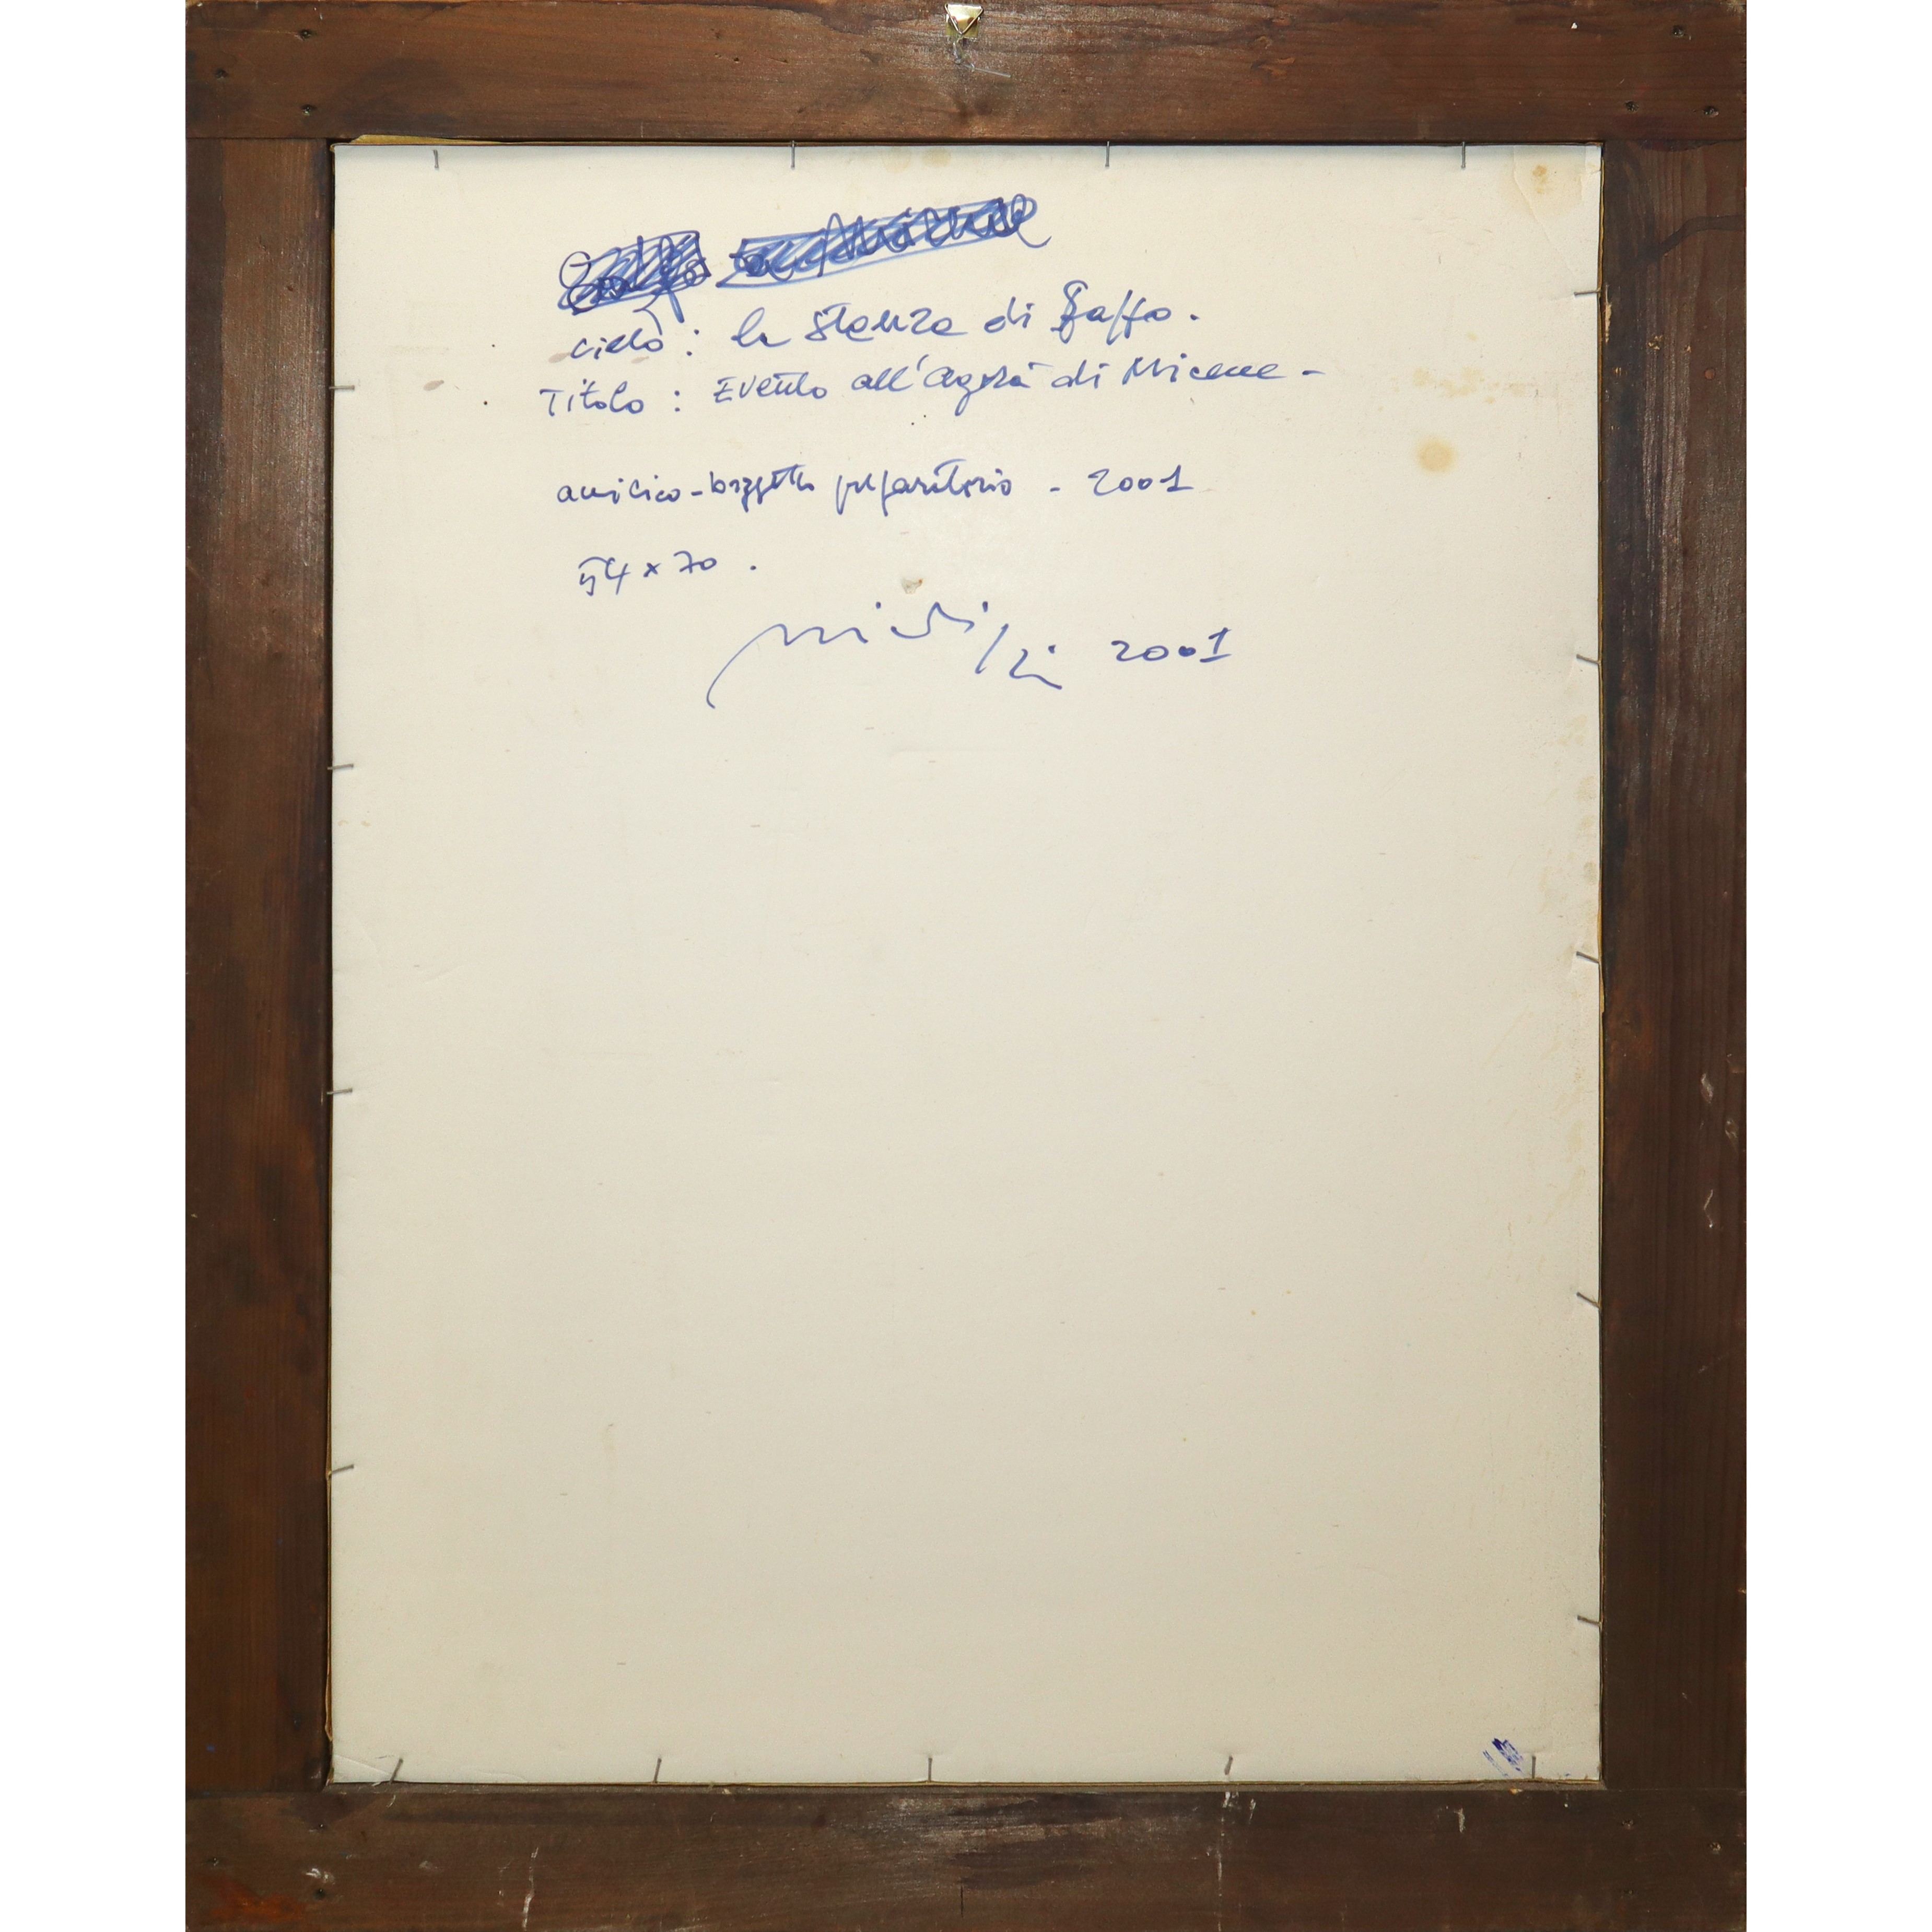 ciclo : la stanza di Saffo .
Titolo : Evento all'Agorà di Micene -
acrilico - bozzetto preparatorio - 2001
54 x 70 .
2001